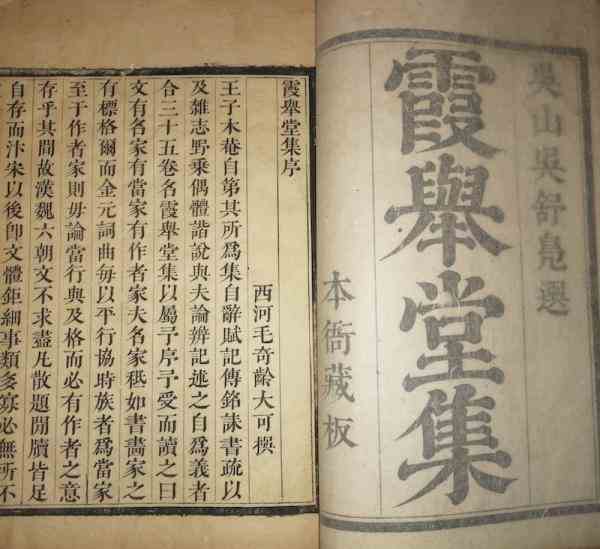 吳山吳舒鳧選
霞舉堂集
本衙藏板
霞舉堂集序
西河毛奇齡大可撰
王子木菴自第其所爲集自辭賦記傳銘誄書疏以
及雑志野乘偶體諧說與夫論辨記述之自爲義者
合三十五卷名霞舉堂集以屬予序予受而讀之曰
文有名家有當家有作者家夫名家秪如書畫家之
有標格爾而金元詞曲每以平行協時族者爲當家
至于作者家則毋論當行與及格而必有作者之意
存乎其間故漢魏六朝文不求盡凡散題閒牘皆足
自存而汴宋以後卽文體鉅細事類多寡必無所不